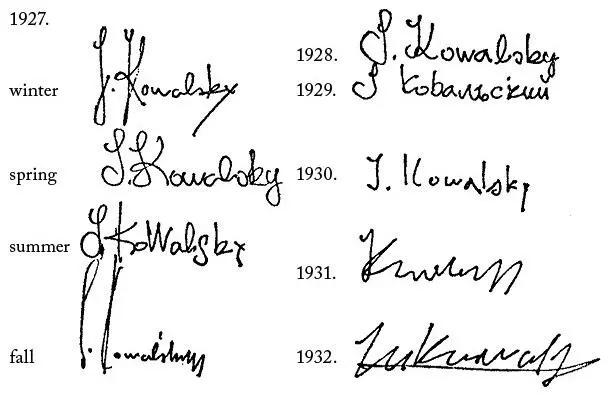 1927.
winter J. Kowalsky
spring J. Kowalsky
summer J. KoWalsky
fall J. Kowalskyy
1928. J. Kowalsky
1929. J Ковальский
1930. J. Kowalsky
1931.
1932.